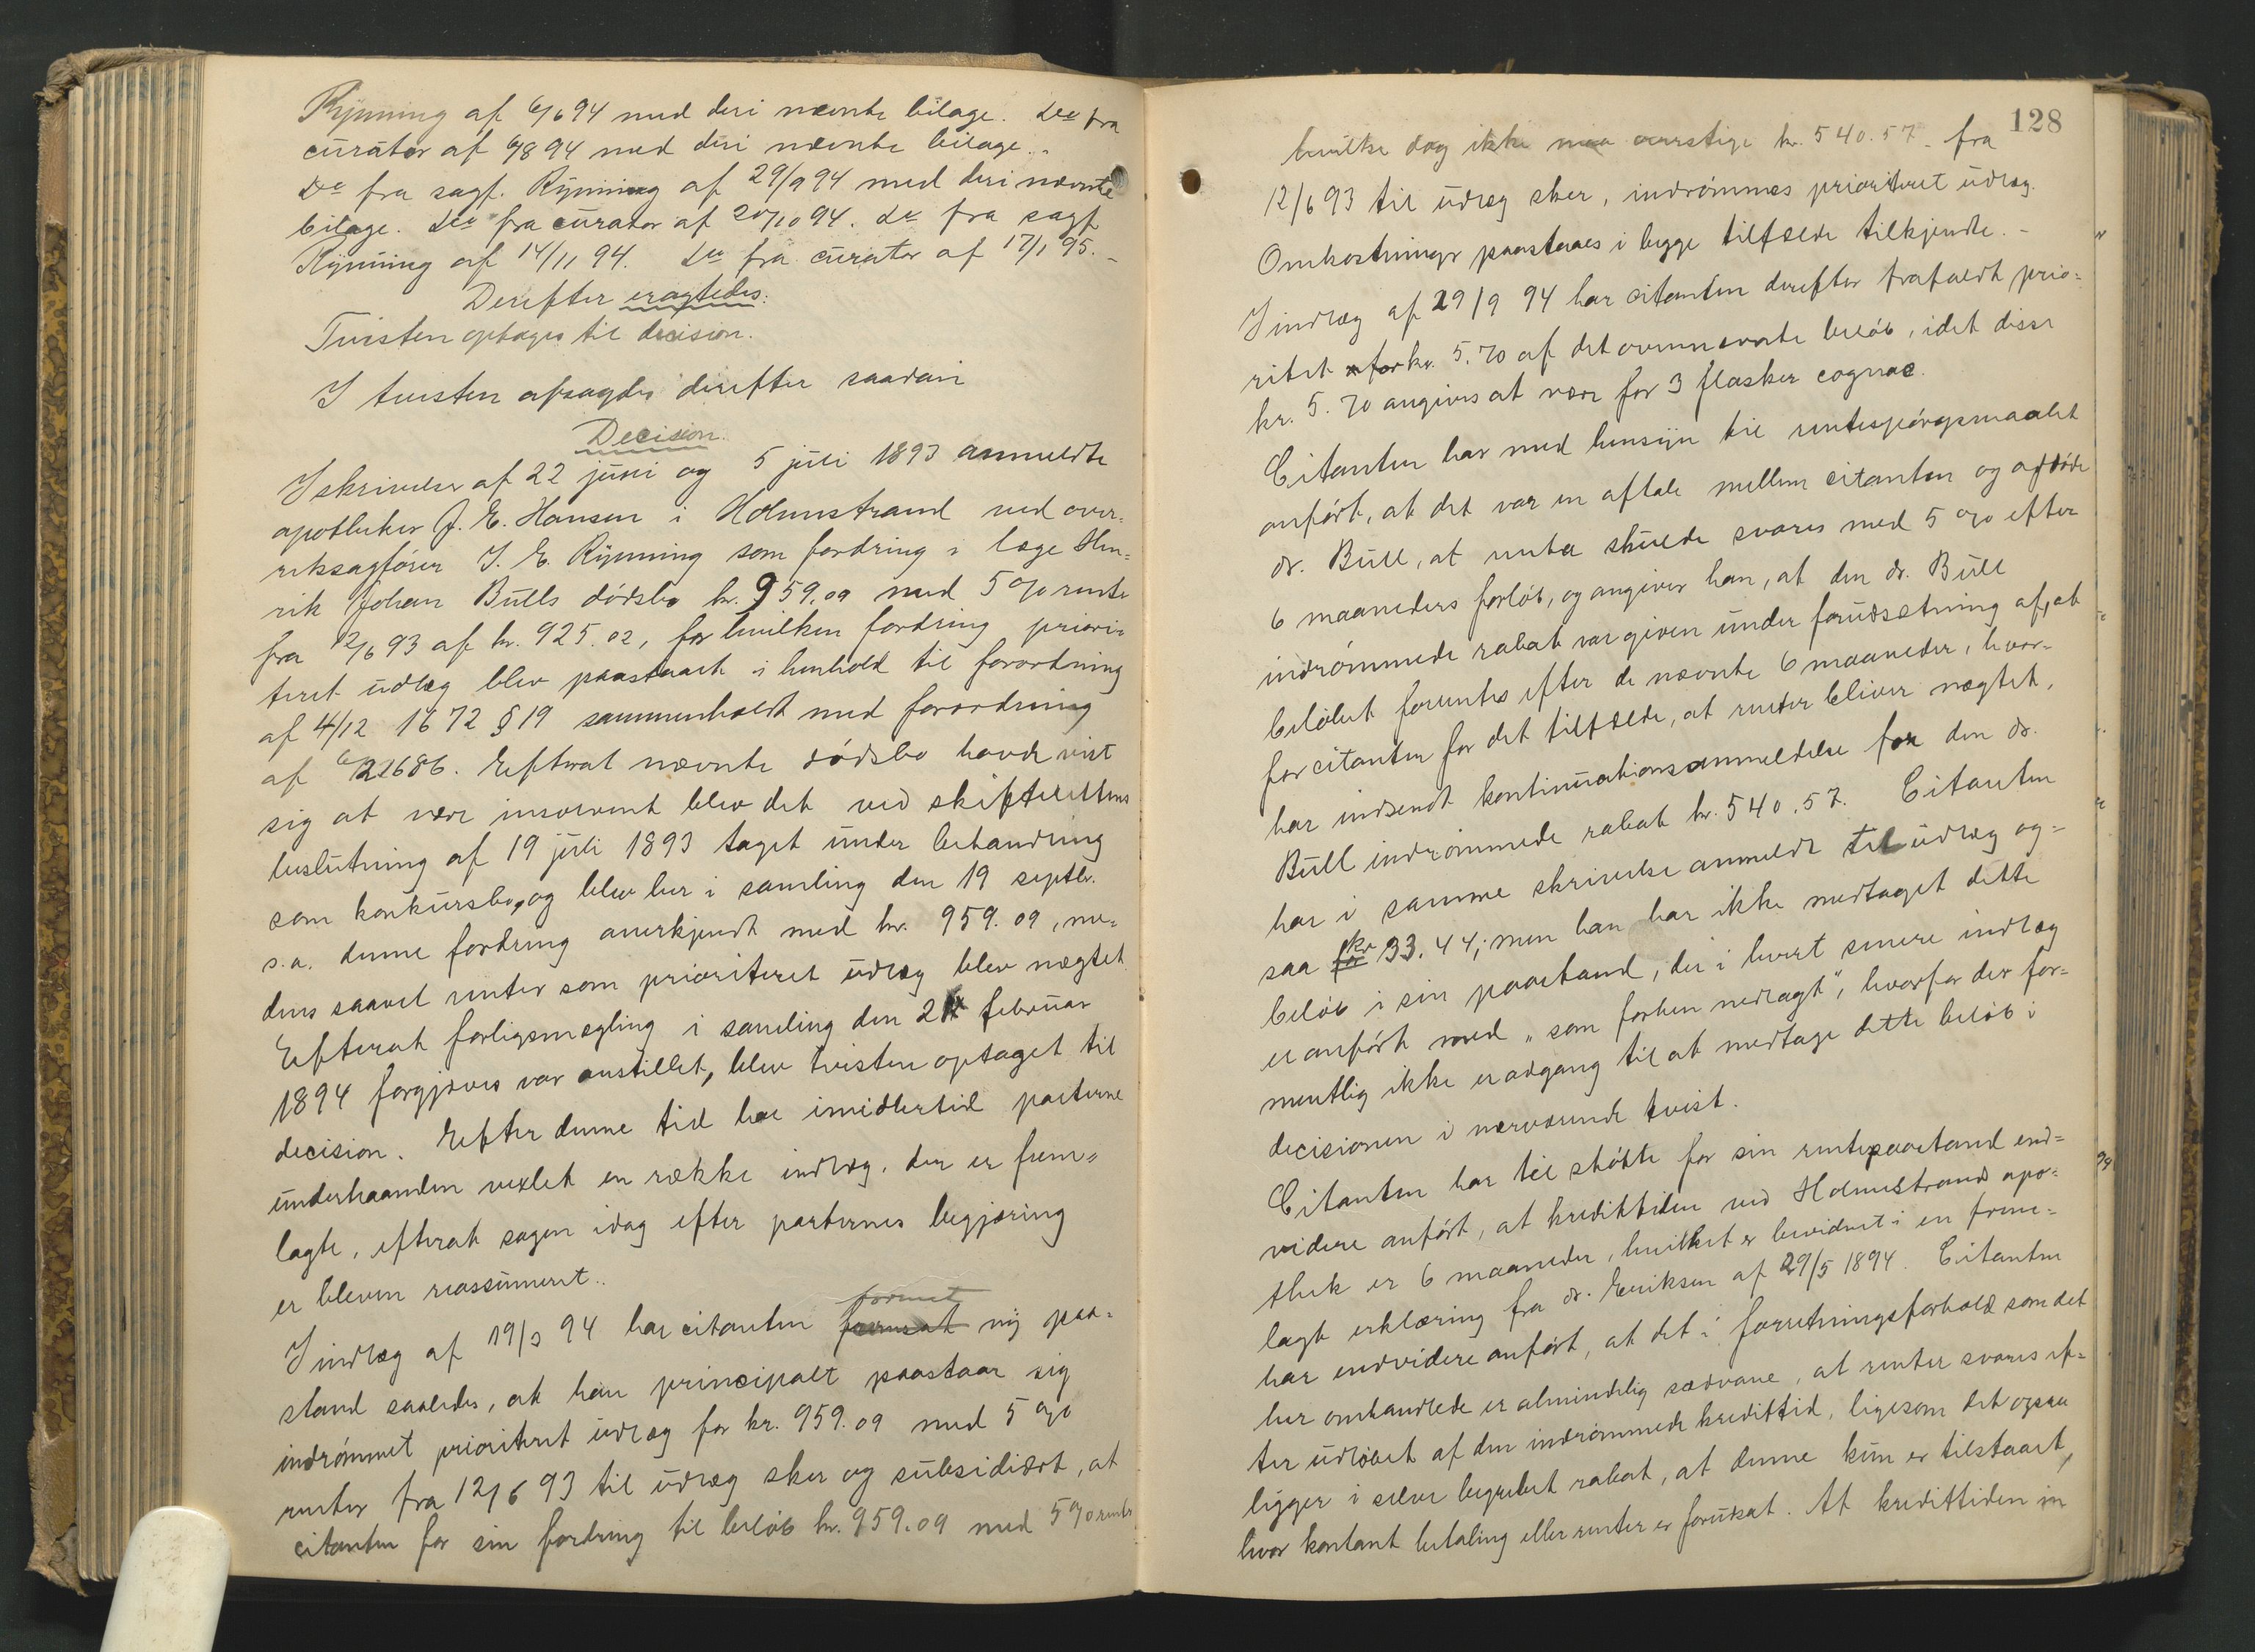 Rynning af 6/6 94 med deri nævnte bilage. Do fra
curator af 6/8 94 med deri nævnte bilage.
Do fra sagf. Rynning af 29/9 94 med deri nævnte
bilage. Do fra curator af 20/10 94. Do fra sagf
Rynning af 14/11 94. Do fra curator af 17/1 95.-
Derefter eragtedes:
Tvisten optages til decision.
I tvisten afsagdes derefter saadan
Decision.
I skrivelser af 22 juni og 5 juli 1893 anmeldte
apotheker J. E. Hansen i Holmestrand ved over-
retssagfører J. E. Rynning som fordring i læge Hen-
rik Johan Bulls dødsbo kr. 959.09 med 5 % rente
fra 12/6 93 af kr. 925.02, for hvilken fordring priori-
teret udlæg blev paastaaet i henhold til forordning
af 4/12 1672 § 19 sammenholdt med forordning
af 1686. Efterat nævnte dødsbo havde vist
sig at være insolvent blev det ved skifterettens
beslutning af 19 juli 1893 taget under behandling
som konkursbo, og blev her i samling den 19 septbr.
s.a. denne fordring anerkjendt med kr. 959.09, me-
dens saavel renter som prioriteret udlæg blev nægtet.
Efterat forligsmægling i samling den februar
1894 forgjæves var anstillet, blev tvisten optaget til
decision. Efter denne tid har imidlertid parterne
underhaanden vexlet en række indlæg, der er frem-
lagte, efterat sagen idag efter parternes begjæring
er bleven reassumeret..
I indlæg af 19/3 94 har citanten formet ny paa-
stand saaledes, at han principalt paastaar sig
indrømmet prioriteret udlæg for kr. 959.09 med 5 %
renter fra 12/6 93 til udlæg sker og subsidiært, at
citanten for sin fordring til beløb kr. 959.09 med 5 % renter
128
hvilke dog ikke maa overstige kr. 540.57 - fra
12/6 93 til udlæg sker, indrømmes prioriteret udlæg.
Omkostninger paastaaes i begge tilfælde tilkjendte.-
I indlæg af 29/9 94 har citanten derefter frafaldt prio-
ritet for kr. 5.70 af det ovennævnte beløb, idet disse
kr. 5.70 angives at være for 3 flasker cognac.
Citanten har med hensyn til rentespørgsmaalet
anført, at det var en aftale mellem citanten og afdøde
dr. Bull, at rente skulde svares med 5 % efter
6 maaneders forløb, og angiver han, at den dr. Bull
indrømmede rabat var given under forudsætning af, at
beløbet forrentes efter de nævnte 6 maaneder, hvor-
for citanten for det tilfælde, at renter bliver nægtet,
har indsendt kontinuationsanmeldelse for den dr.
Bull indrømmede rabat kr. 540.57. Citanten
har i samme skrivelse anmeldt til udlæg og-
saa kr 33.44; men han har ikke medtaget dette
beløb i sin paastand, der i hvert senere indlæg
er anført med „som forhen nedlagt“, hvorfor der for-
mentlig ikke er adgang til at medtage dette beløb i
decisionen i nærværende tvist.
Citanten har til støtte for sin rentepaastand end-
videre anført, at kredittiden ved Holmestrands apo-
thek er 6 maaneder, hvilket er bevidnet i en frem-
lagt erklæring fra dr. Eriksen af 29/5 1894. Citanten
har endvidere anført, at det i forretningsforhold som det
her omhandlede er almindelig sædvane, at renter svares ef-
ter udløbet af den indrømmede kredittid, ligesom det ogsaa
ligger i selve begrebet rabat, at denne kun er tilstaaet,
hvor kontant betaling eller renter er forudsat. At kredittiden in